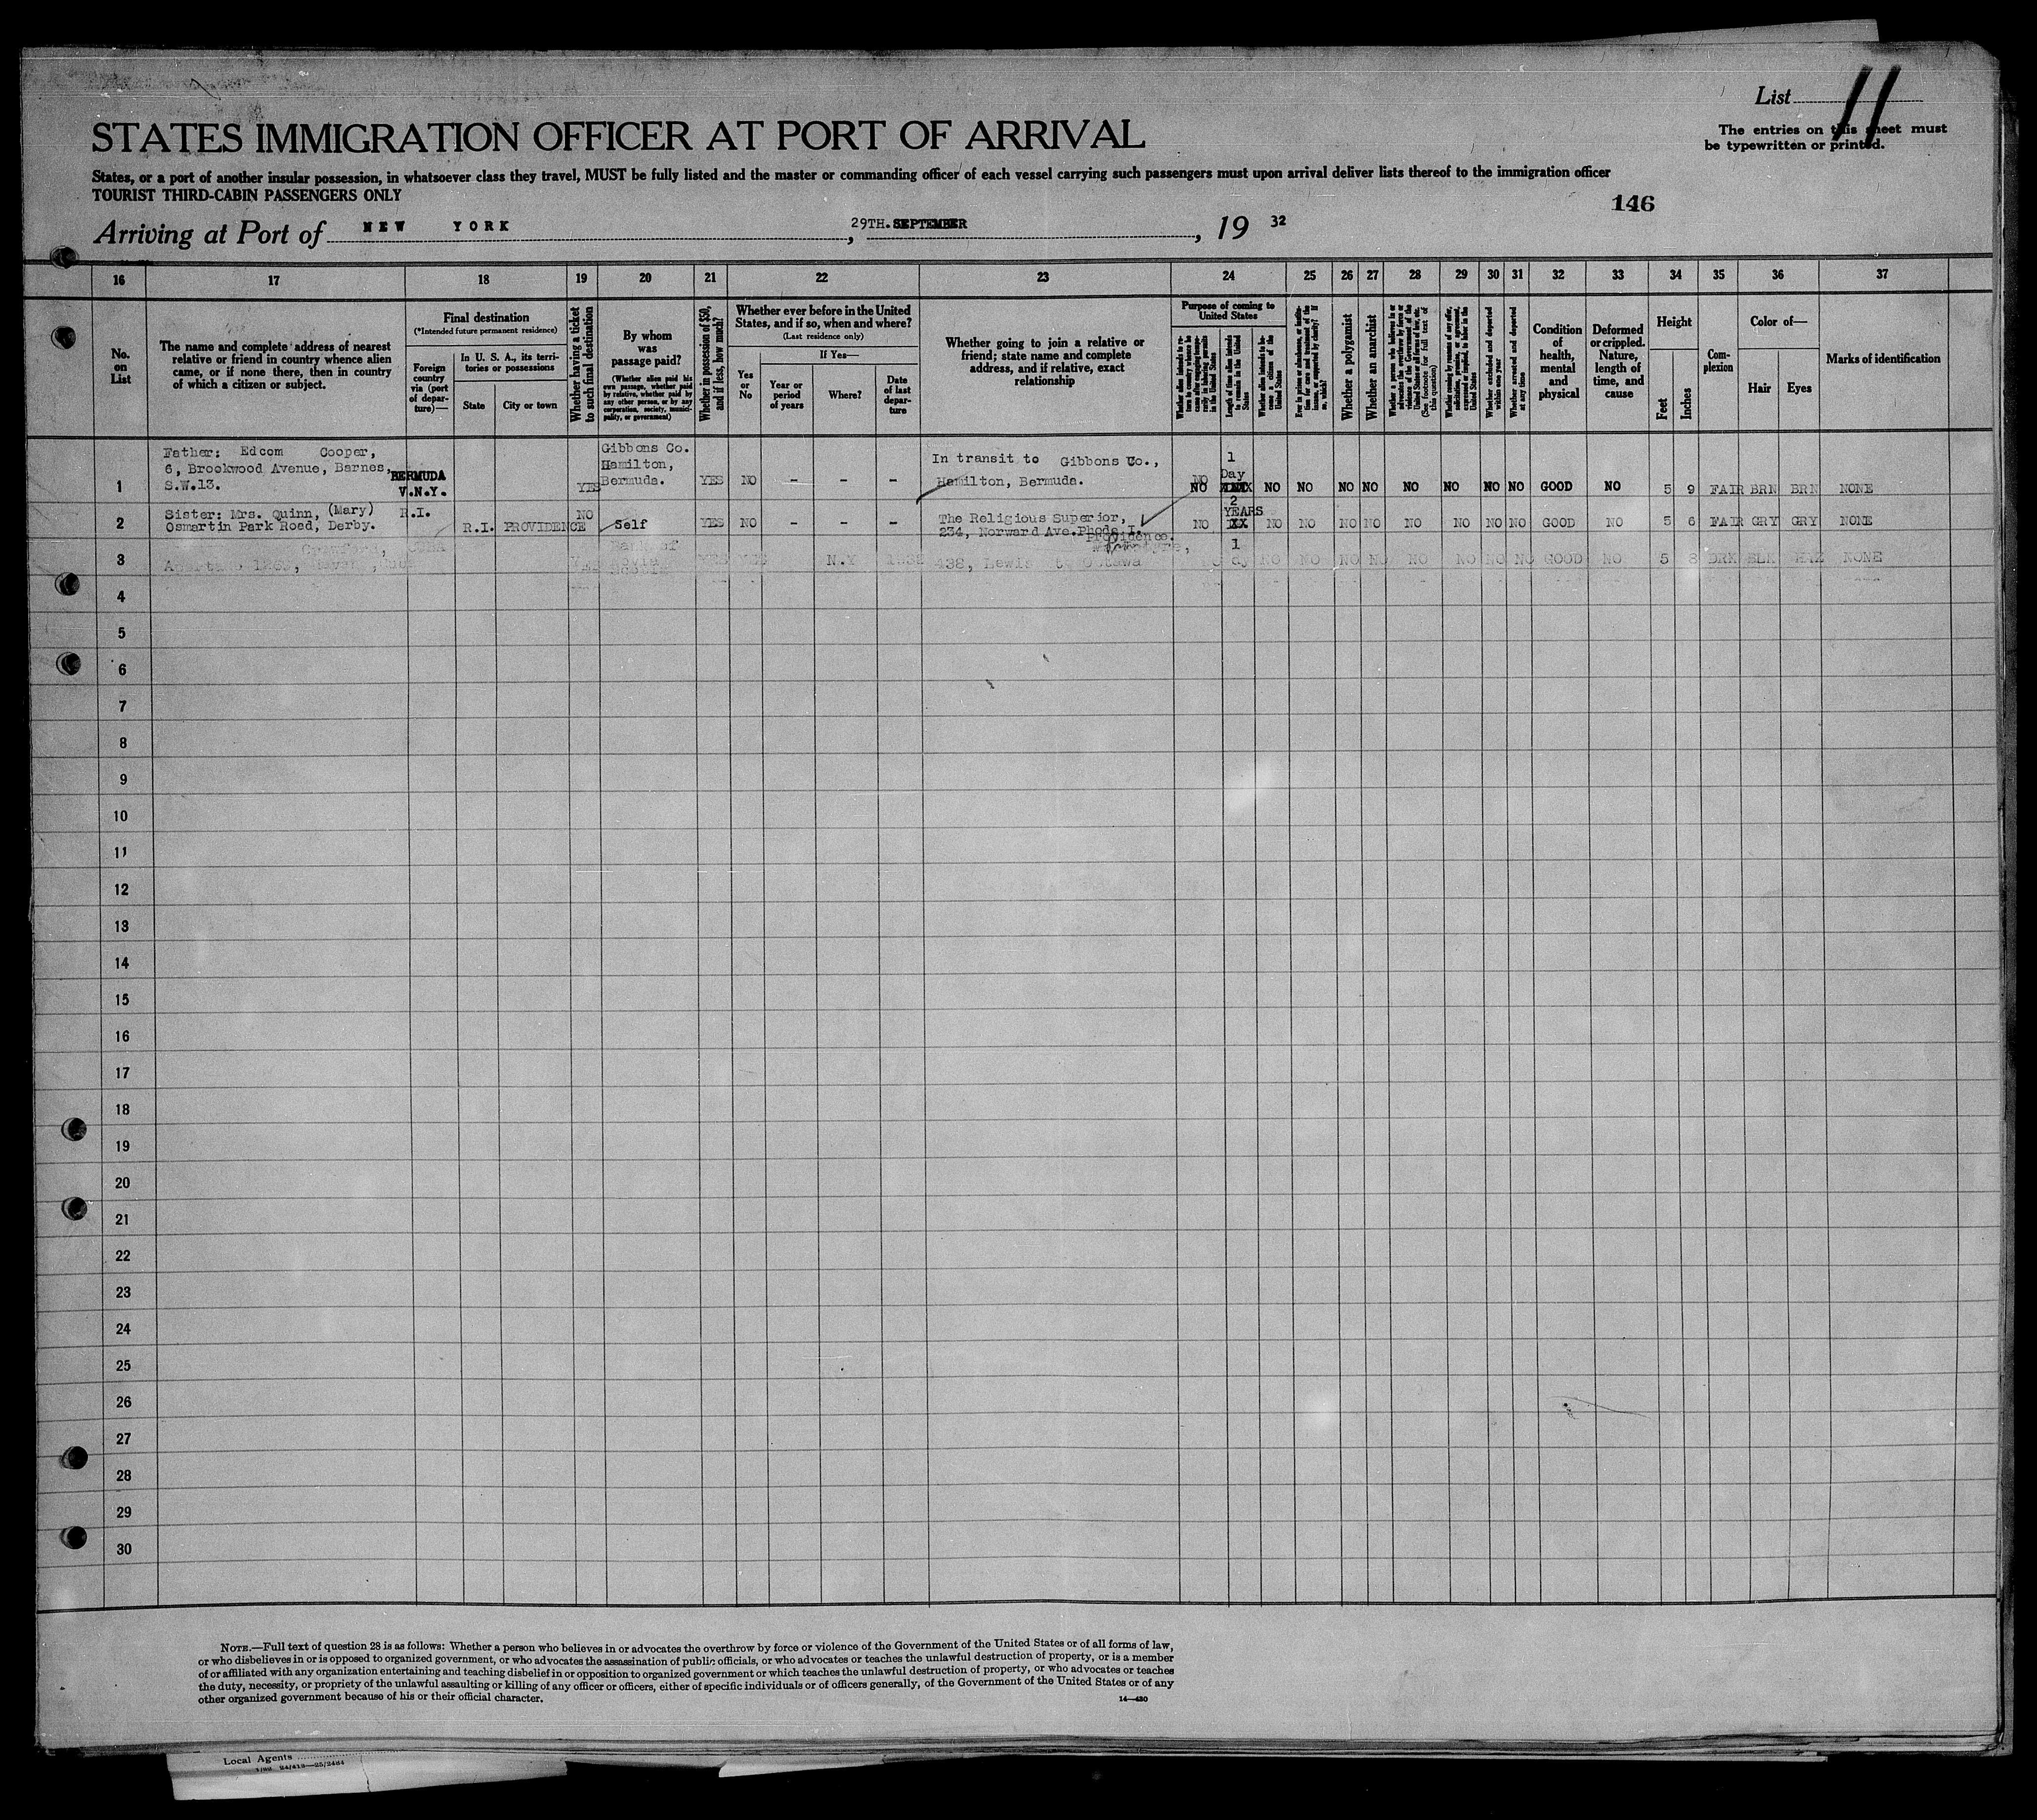 List 11
The entries on this sheet must
be typewritten or printed.
STATES IMMIGRATION OFFICER AT PORT OF ARRIVAL
States, or a port of another insular possession, in whatsoever class they travel, MUST be fully listed and the master or commanding officer of each vessel carrying such passengers must upon arrival deliver lists thereof to the immigration officer
TOURIST THIRD-CABIN PASSENGERS ONLY
146
Arriving at Port of NEW YORK, 29TH. SEPTEMBER, 19 32
16 17 18 19 20 21 22 23 24 25 26 27 28 29 30 31 32 33 34 35 36 37
No. on List
The name and complete address of nearest
relative or friend in country whence alien
came, or if none there, then in country
of which a citizen or subject.
Final destination
(*Intended future permanent residence)
Foreign
country
via (port
of depar-
ture)—
In U. S. A., its terri-
tories or possessions
State
City or town
Whether having a ticket
to such final destination
By whom
was
passage paid?
(Whether alien paid his
own passage, whether paid
by relative, whether paid by
any other person, or by any
corporation, society, munici-
pality, or government)
Whether in possession of $50,
and if less, how much?
Whether ever before in the United
States, and if so, when and where?
(Last residence only)
Yes
or
No
If Yes—
Year or
period
of years
Where?
Date
of last
depar-
ture
Whether going to join a relative or
friend; state name and complete
address, and if relative, exact
relationship
Purpose of coming to
United States
Whether alien intends to re-
turn to country whence he
came after engaging tempo-
rarily in laboring pursuits
in the United States
Length of time alien intends
to remain in the United
States
Whether alien intends to be-
come a citizen of the
United States
Ever in prison or almshouse, or institu-
tion for care and treatment of the
insane, or supported by charity? If
so, which?
Whether a polygamist
Whether an anarchist
Whether a person who believes in or
advocates the overthrow by force or
violence of the Government of the
United States or all forms of law, etc.
(See footnote for full text of
this question)
Whether coming by reason of any offer,
solicitation, promise, or agreement,
expressed or implied, to labor in the
United States
Whether excluded and deported
within one year
Whether arrested and deported
at any time
Condition
of
health,
mental
and
physical
Deformed
or crippled.
Nature,
length of
time, and
cause
Height
Feet
Inches
Com-
plexion
Color of—
Hair
Eyes
Marks of identification
1
Father: Edcom Cooper,
6, Brookwood Avenue, Barnes,
S.W.13.
BERMUDA
V.N.Y.
YES
Gibbons Co.
Hamilton,
Bermuda.
YES NO - - -
In transit to Gibbons Co.,
Hamilton, Bermuda.
NO
NO
1
Day
NO NO NO NO NO NO NO NO GOOD NO 5 9 FAIR BRN BRN NONE
2
Sister: Mrs. Quinn, (Mary)
Osmartin Park Road, Derby.
R.I.
R.I. PROVIDENCE
NO
Self YES NO - - -
The Religious Superior,
234, Norward Ave. Rhode I.
Providence.
NO
2
YEARS
XX
NO NO NO NO NO NO NO NO GOOD NO 5 6 FAIR GRY GRY NONE
3
Crawford,
YES YES N.Y
438, Lewis St. Ottawa
1
dy NO NO NO NO NO NO NO NO GOOD NO 5 8 DRK BLK HAZ NONE
4
5
6
7
8
9
10
11
12
13
14
15
16
17
18
19
20
21
22
23
24
25
26
27
28
29
30
NOTE.—Full text of question 28 is as follows: Whether a person who believes in or advocates the overthrow by force or violence of the Government of the United States or of all forms of law,
or who disbelieves in or is opposed to organized government, or who advocates the assassination of public officials, or who advocates or teaches the unlawful destruction of property, or is a member
of or affiliated with any organization entertaining and teaching disbelief in or opposition to organized government or which teaches the unlawful destruction of property, or who advocates or teaches
the duty, necessity, or propriety of the unlawful assaulting or killing of any officer or officers, either of specific individuals or of officers generally, of the Government of the United States or of any
other organized government because of his or their official character.
14—430
Local Agents